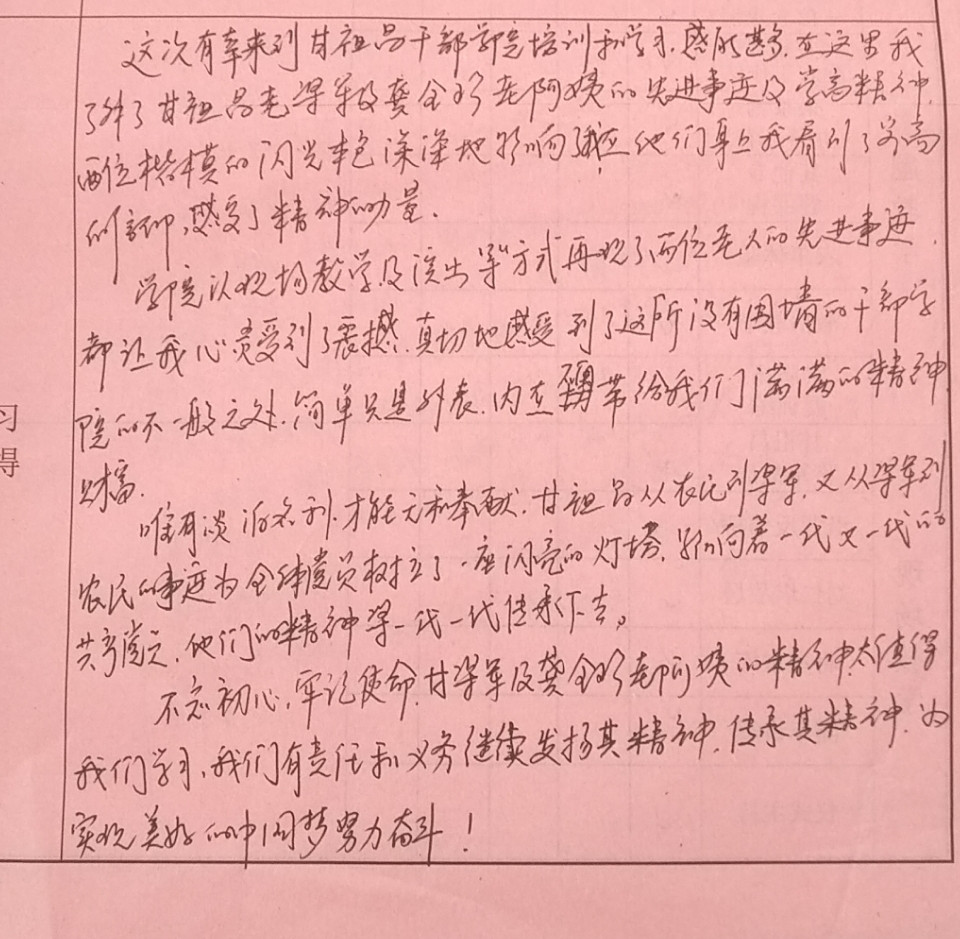 这次有幸来到甘祖昌干部学院培训和学习,感触甚多,在这里我
了解了甘祖昌老将军及龚全珍老阿姨的先进事迹及崇高精神,
两位楷模的闪光本色深深地影响了我,在他们身上我看到了崇高
的信仰,感受了精神的力量.
学院以现场教学及演出等方式再现了两位老人的先进事迹,
都让我心灵受到了震撼,真切地感受到了这所没有围墙的干部学
院的不一般之处.简单只是外表,内在 带给我们满满的精神
财富.
唯有淡泊名利,才能无私奉献.甘祖昌从农民到将军,又从将军到
农民的事迹为全体党员树立了一座闪亮的灯塔,影响着一代又一代的
共产党员,他们的精神将一代一代传承下去。
不忘初心,牢记使命,甘将军及龚全珍老阿姨的精神太值得
我们学习,我们有责任和义务继续发扬其精神,传承其精神,为
实现美好的中国梦努力奋斗!
习
得